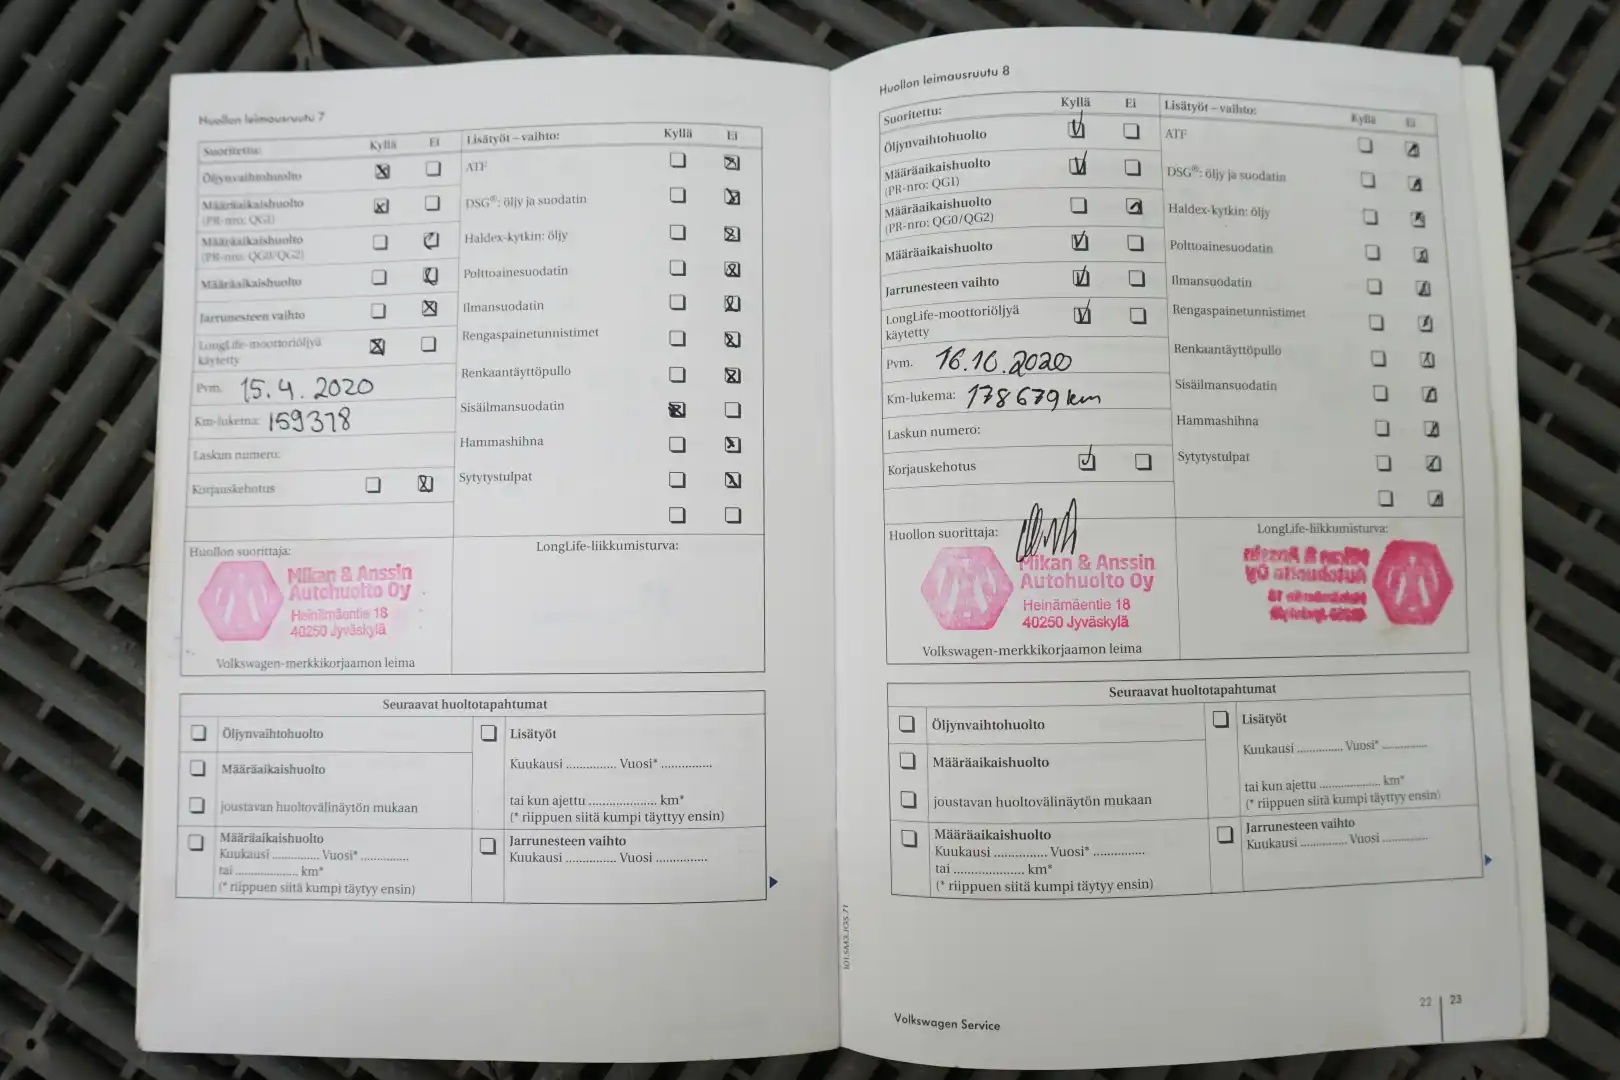 Huollon leimausruutu 7
Suoritettu: Kyllä Ei
Öljynvaihtohuolto
Määräaikaishuolto
(PR-nro: QG1)
Määräaikaishuolto
(PR-nro: QG0/QG2)
Määräaikaishuolto
Jarrunesteen vaihto
LongLife-moottoriöljyä
käytetty
Pvm. 15.4.2020
Km-lukema: 159378
Laskun numero:
Korjauskehotus
Lisätyöt – vaihto: Kyllä Ei
ATF
DSG®: öljy ja suodatin
Haldex-kytkin: öljy
Polttoainesuodatin
Ilmansuodatin
Rengaspainetunnistimet
Renkaantäyttöpullo
Sisäilmansuodatin
Hammashihna
Sytytystulpat
Huollon suorittaja:
Mikan & Anssin
Autohuolto Oy
Heinämäentie 18
40250 Jyväskylä
Volkswagen-merkkikorjaamon leima
LongLife-liikkumisturva:
Seuraavat huoltotapahtumat
Öljynvaihtohuolto
Määräaikaishuolto
joustavan huoltovälinäytön mukaan
Määräaikaishuolto
Kuukausi ............... Vuosi* ...............
tai .................... km*
(* riippuen siitä kumpi täytyy ensin)
Lisätyöt
Kuukausi ............... Vuosi* ...............
tai kun ajettu .................... km*
(* riippuen siitä kumpi täyttyy ensin)
Jarrunesteen vaihto
Kuukausi ............... Vuosi ...............
Huollon leimausruutu 8
Suoritettu: Kyllä Ei
Öljynvaihtohuolto
Määräaikaishuolto
(PR-nro: QG1)
Määräaikaishuolto
(PR-nro: QG0/QG2)
Määräaikaishuolto
Jarrunesteen vaihto
LongLife-moottoriöljyä
käytetty
Pvm. 16.10.2020
Km-lukema: 178679 km
Laskun numero:
Korjauskehotus
Lisätyöt – vaihto: Kyllä Ei
ATF
DSG®: öljy ja suodatin
Haldex-kytkin: öljy
Polttoainesuodatin
Ilmansuodatin
Rengaspainetunnistimet
Renkaantäyttöpullo
Sisäilmansuodatin
Hammashihna
Sytytystulpat
Huollon suorittaja:
Mikan & Anssin
Autohuolto Oy
Heinämäentie 18
40250 Jyväskylä
Volkswagen-merkkikorjaamon leima
LongLife-liikkumisturva:
Seuraavat huoltotapahtumat
Öljynvaihtohuolto
Määräaikaishuolto
joustavan huoltovälinäytön mukaan
Määräaikaishuolto
Kuukausi ............... Vuosi* ...............
tai .................... km*
(* riippuen siitä kumpi täytyy ensin)
Lisätyöt
Kuukausi ............... Vuosi* ...............
tai kun ajettu .................... km*
(* riippuen siitä kumpi täyttyy ensin)
Jarrunesteen vaihto
Kuukausi ............... Vuosi ...............
Volkswagen Service
22 23